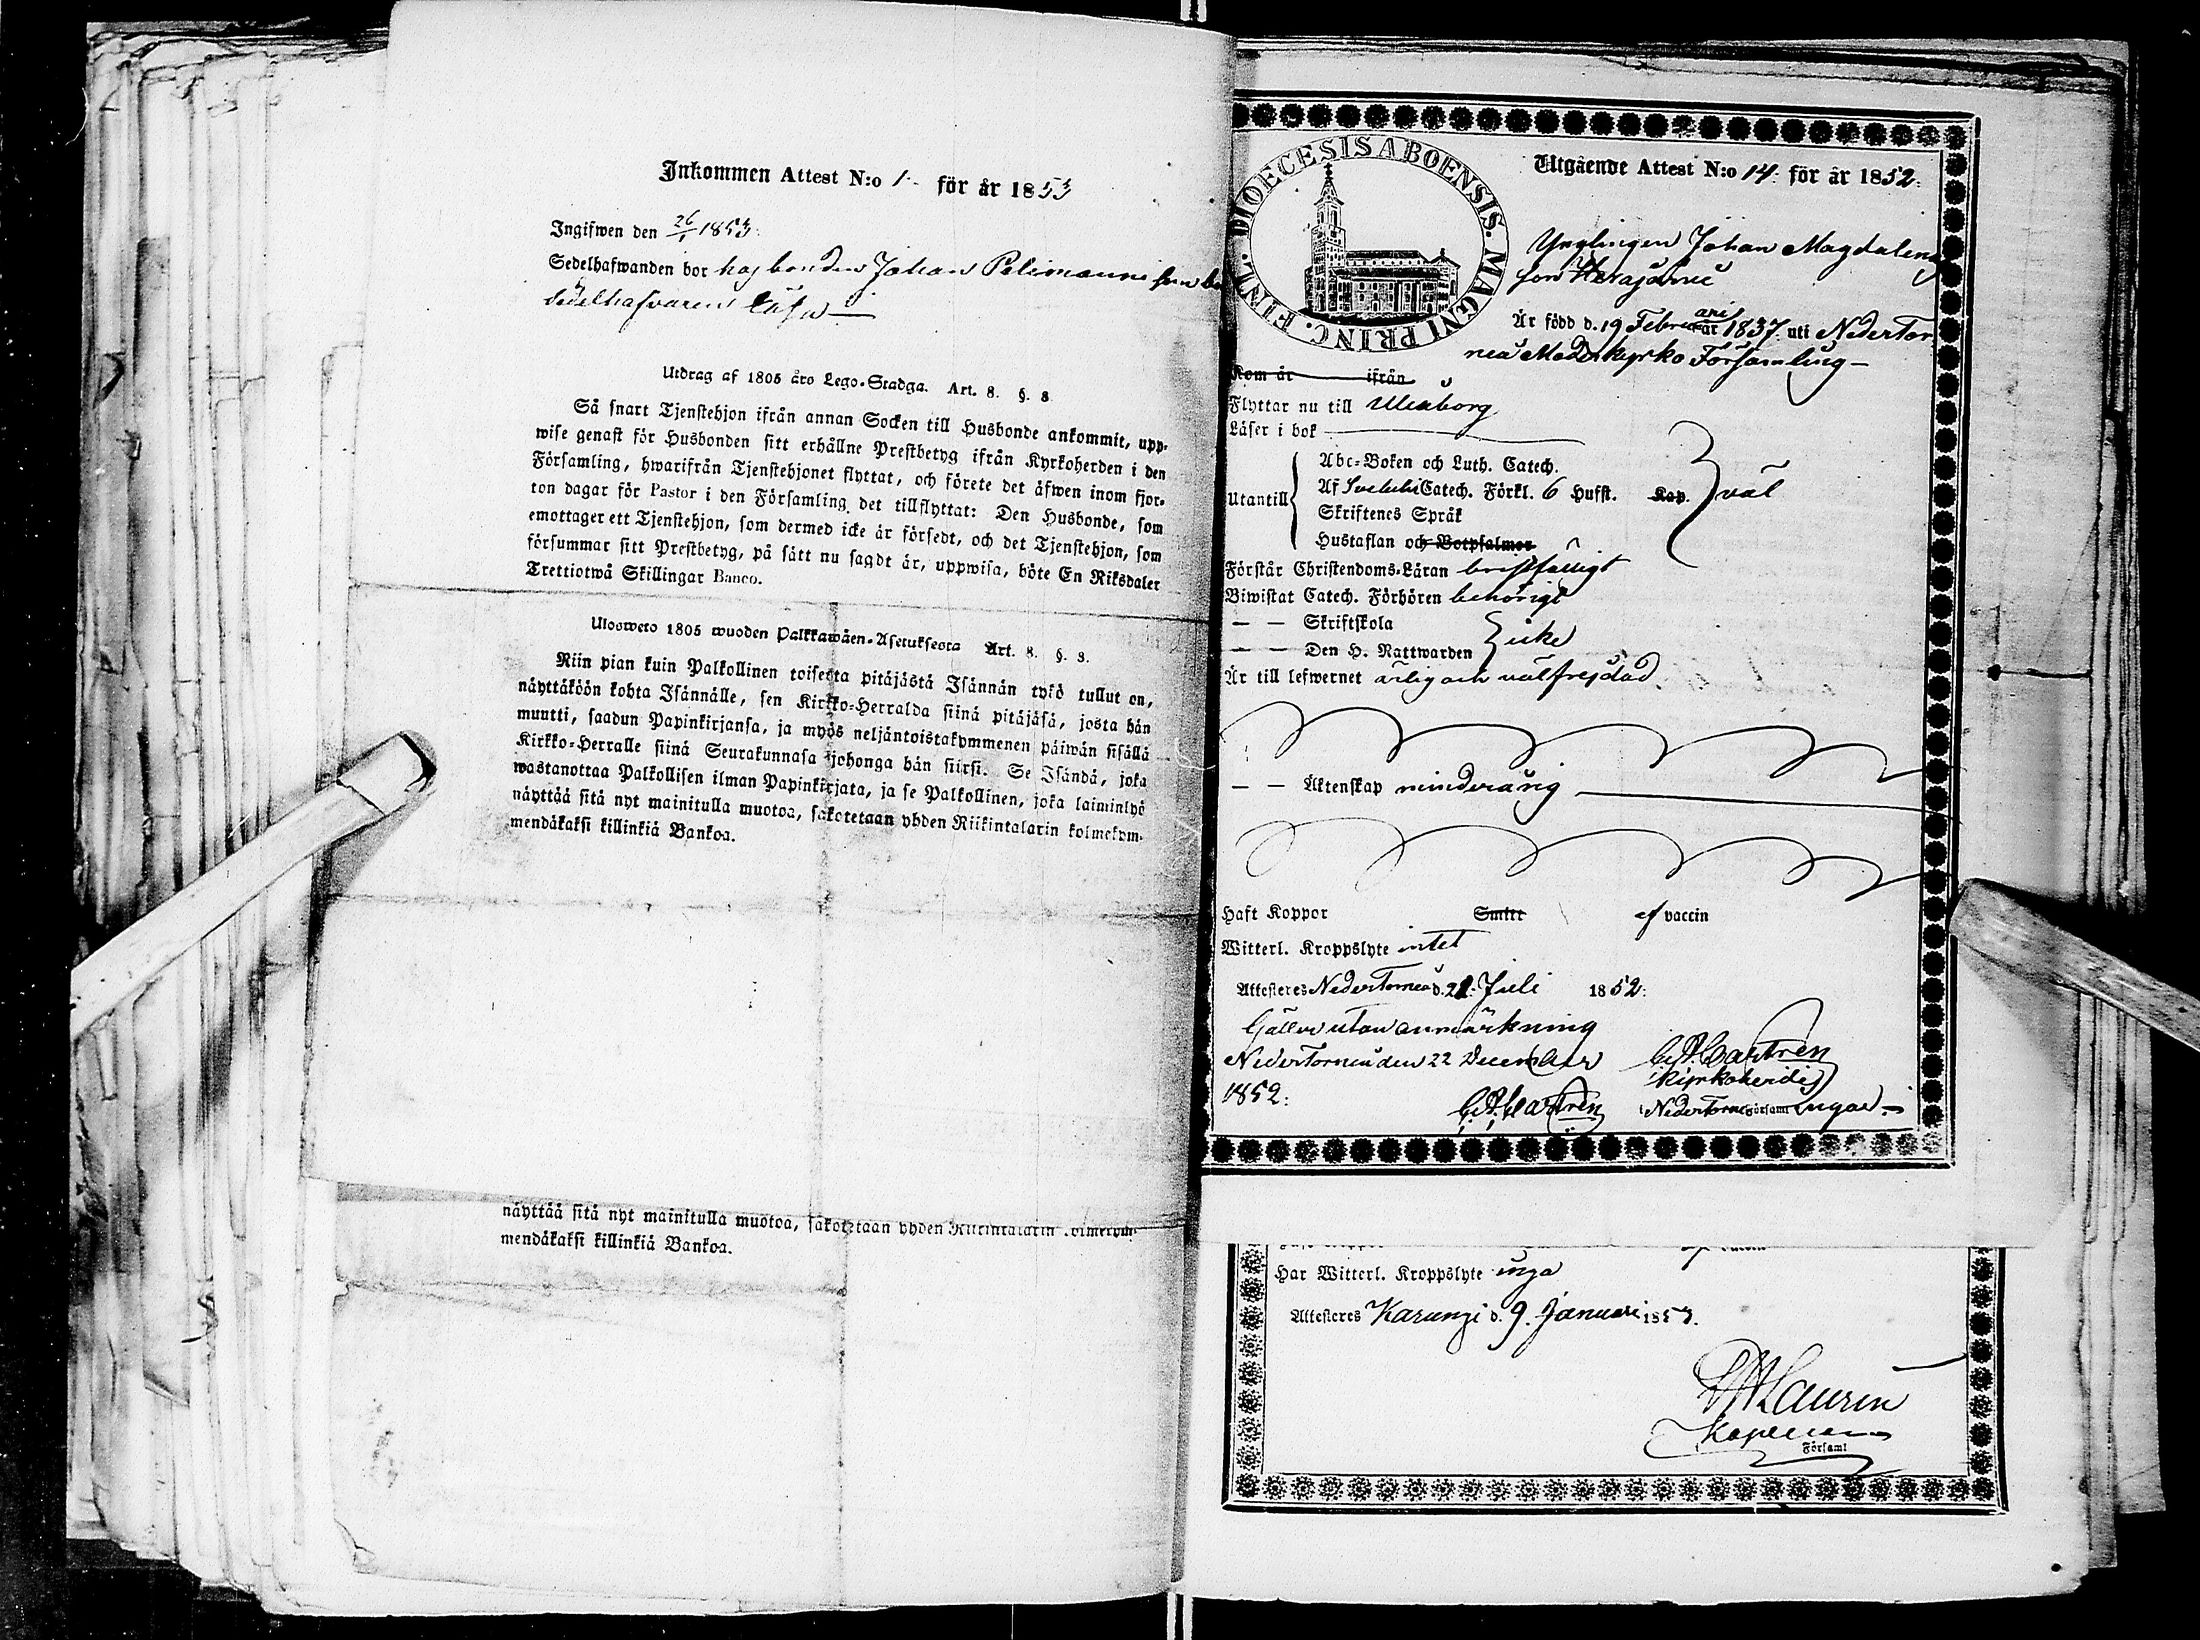 Inkommen Attest N:o 1. för år 1853
Ingifwen den 26/1 1853.
Sedelhafwanden bor hos bonden Johan Pelimanni som
Utdrag af 1805 års Lego-Stadga. Art. 8. §. 8.
Så snart Tjenstehjon ifrån annan Socken till Husbonde ankommit, upp-
wise genast för Husbonden sitt erhållne Prestbetyg ifrån Kyrkoherden i den
Församling, hwarifrån Tjenstehjonet flyttat, och förete det äfwen inom fjor-
ton dagar för Pastor i den Församling det tillflyttat: Den Husbonde, som
emottager ett Tjenstehjon, som dermed icke är försedt, och det Tjenstehjon, som
försummar sitt Prestbetyg, på sätt nu sagdt är, uppwisa, böte En Riksdaler
Trettiotwå Skillingar Banco.
Ulosweto 1805 wuoden Palkkawäen-Asetuksesta Art. 8. §. 8.
Niin pian kuin Palkollinen toisesta pitäjästä Isännän tykö tullut on,
näyttäköön kohta Isännälle, sen Kirkko-Herralda siinä pitäjäsä, josta hän
muutti, saadun Papinkirjansa, ja myös neljäntoistakymmenen päiwän sisällä
Kirkko-Herralle siinä Seurakunnasa johonga hän siirsi. Se Isändä, joka
wastanottaa Palkollisen ilman Papinkirjata, ja se Palkollinen, joka laiminlyö
näyttää sitä nyt mainitulla muotoa, sakotetaan yhden Riikintalarin kolmekym-
mendäkaksi killinkiä Bankoa.
näyttää sitä nyt mainitulla muotoa, sakotetaan yhden Riikintalarin kolmekym-
mendäkaksi killinkiä Bankoa.
DIOECESIS ABOENSIS. MAGNI PRINC. FINL.
Utgående Attest N:o 14. för år 1852.
Ynglingen Johan Magdalenæ
son Herajärvi
Är född d. 19 Februari år 1837. uti Neder Tor
neå Moderkyrko Församling –
Kom år ifrån
Flyttar nu till Uleåborg
Läser i bok
Utantill
Abc-Boken och Luth. Catech.
Af Svebelii Catech. Förkl. 6 Hufst. Kap. väl
Skriftenes Språk
Hustaflan och Botpsalmer
Förstår Christendoms-Läran bristfälligt
Biwistat Catech. Förhören behörigt
— — Skriftskola
— — Den H. Nattwarden icke
Är till lefwernet ärlig och välfrejdad
— — Äktenskap minderårig
Haft Koppor Smitt af vaccin
Witterl. Kroppslyte intet
Attesteres Neder Torneå d. 21. Juli 1852:
Gäller utan anmärkning
Neder Torneå den 22 December
1852:
C. A. Castrén
C. A. Castrén
Kyrkoherde
i Neder Torneå Församl ingar –
Har Witterl. Kroppslyte inga
Attesteres Karungi d. 9. Januari 1853.
Laurin
Kapellans
Församl